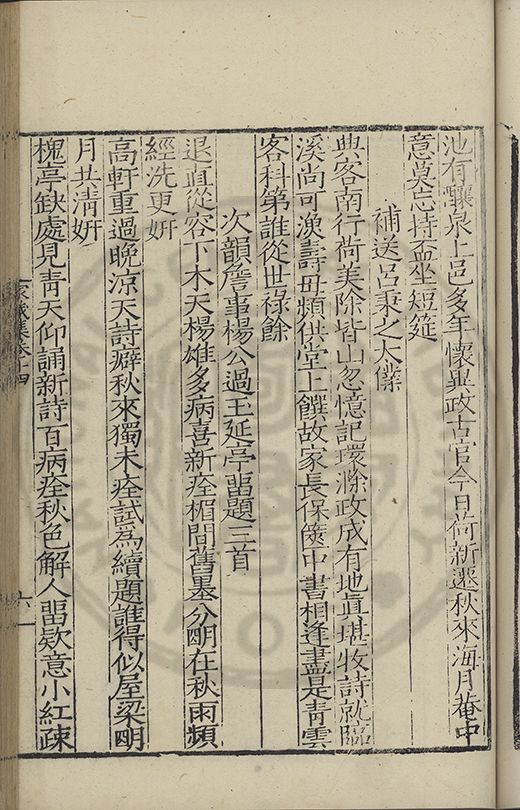 池有釀泉上邑多年懷與政吉官今日荷新遷秋來海月菴中
意莫忘持盃坐短筵
補送呂秉之太僕
典客南行荷美除皆山忽憶記環滁政成有地眞堪牧詩就臨
溪尚可漁壽毋頻供堂上饌故家長保篋中書相逢盡是靑雲
客科第誰從世祿餘
次韻詹事楊公過玉延亭畱題三首
退直從容下木天楊雄多病喜新痊楣間舊墨分明在秋雨頻
經洗更姸
高軒重過晚凉天詩癖秋來獨未痊試爲續題誰得似屋梁明
月共淸姸
槐亭缺處見靑天仰誦新詩百病痊秋色解人畱欵意小紅疎
家藏集卷十四
六